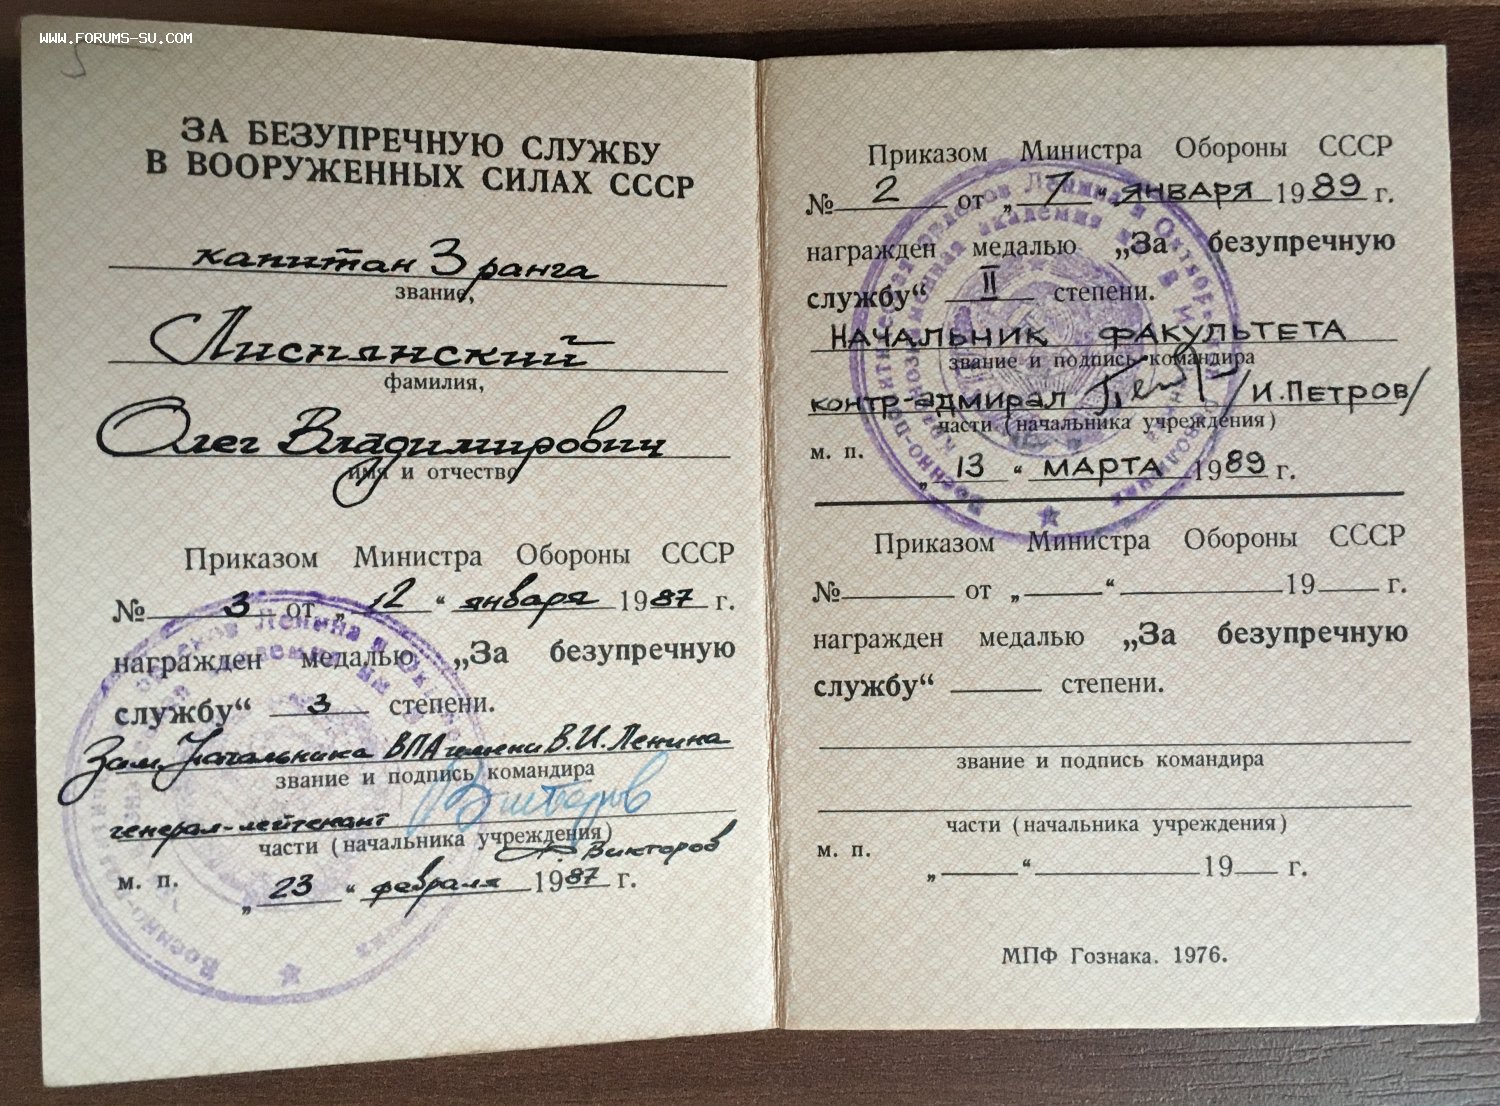 WWW.FORUMS-SU.COM
ЗА БЕЗУПРЕЧНУЮ СЛУЖБУ
В ВООРУЖЕННЫХ СИЛАХ СССР
капитан 3 ранга
звание,
Лиспянский
фамилия,
Олег Владимирович
имя и отчество
Приказом Министра Обороны СССР
№ 3 от „ 12 “ января 1987 г.
награжден медалью „За безупречную
службу“ 3 степени.
Зам. Начальника ВПА имени В.И. Ленина
звание и подпись командира
генерал-лейтенант
части (начальника учреждения)
Викторов
м. п.
„ 23 “ февраля 1987 г.
Приказом Министра Обороны СССР
№ 2 от „ 7 “ января 1989 г.
награжден медалью „За безупречную
службу“ II степени.
НАЧАЛЬНИК ФАКУЛЬТЕТА
звание и подпись командира
контр-адмирал /И.ПЕТРОВ/
части (начальника учреждения)
м. п.
„ 13 “ МАРТА 1989 г.
Приказом Министра Обороны СССР
№ от „ “ 19 г.
награжден медалью „За безупречную
службу“ степени.
звание и подпись командира
части (начальника учреждения)
м. п.
„ “ 19 г.
МПФ Гознака. 1976.